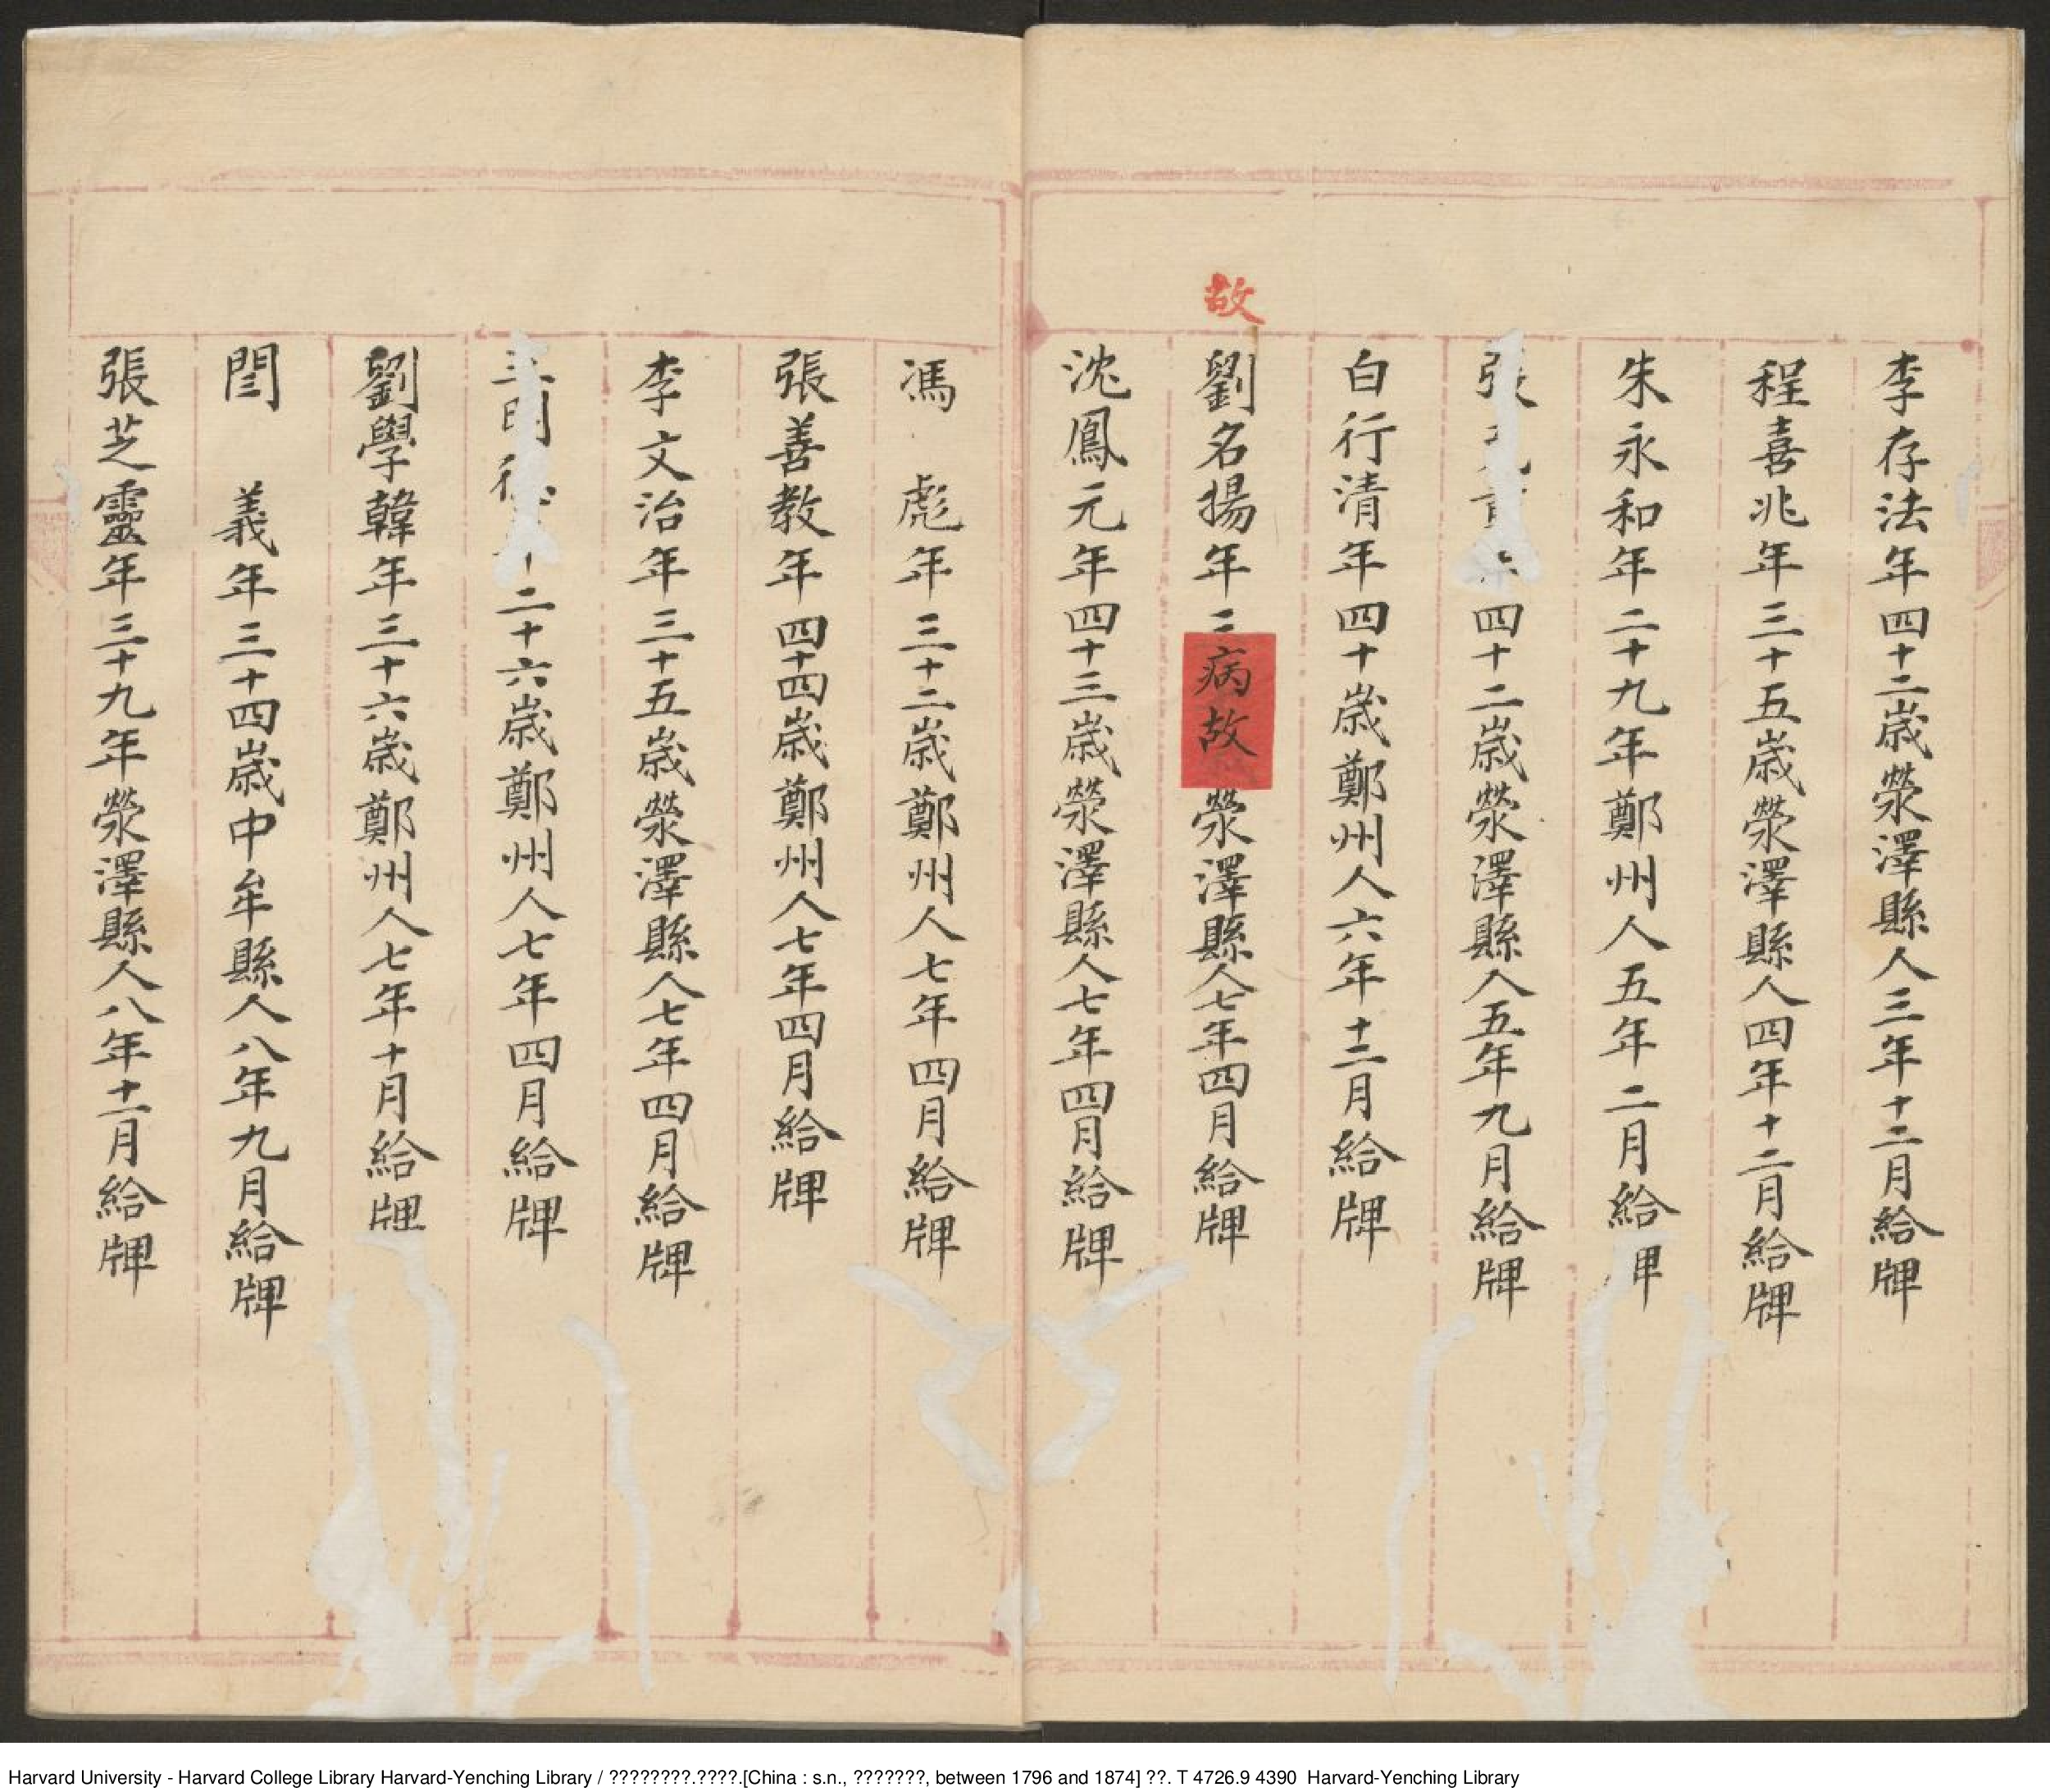 李存法年四十二歲滎澤縣人三年十二月給牌
程喜兆年三十五歲滎澤縣人四年十二月給牌
朱永和年二十九年鄭州人五年二月給
張 四十二歲滎澤縣人五年九月給牌
白行清年四十歲鄭州人六年十二月給牌
故
劉名揚年 滎澤縣人七年四月給牌
病故
沈鳳元年四十三歲滎澤縣人七年四月給牌
馮彪年三十二歲鄭州人七年四月給牌
張善教年四十四歲鄭州人七年四月給牌
李文治年三十五歲滎澤縣人七年四月給牌
二十六歲鄭州人七年四月給牌
劉學韓年三十六歲鄭州人七年十月給牌
閆義年三十四歲中牟縣人八年九月給牌
張芝靈年三十九年滎澤縣人八年十一月給牌
Harvard University - Harvard College Library Harvard-Yenching Library / ????????.????.[China : s.n., ???????, between 1796 and 1874] ??. T 4726.9 4390 Harvard-Yenching Library